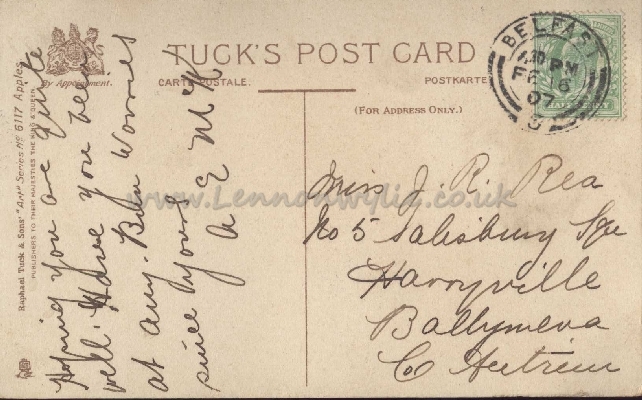 TUCK'S POST CARD
By Appointment.
CARTE POSTALE.
POSTKARTE
(FOR ADDRESS ONLY.)
Raphael Tuck & Sons' "Art" Series No 6117 Apples
PUBLISHERS TO THEIR MAJESTIES THE KING & QUEEN.
BELFAST
1.30 PM
FE 6
07
HALFPENNY
Hoping you are quite
well. Have you been
at any. Burn Worrods
since Yours
A E McK
Miss J. R. Rea
No 5 Salisbury Sqe
Harryville
Ballymena
Co Antrim
www.Lennonwylie.co.uk